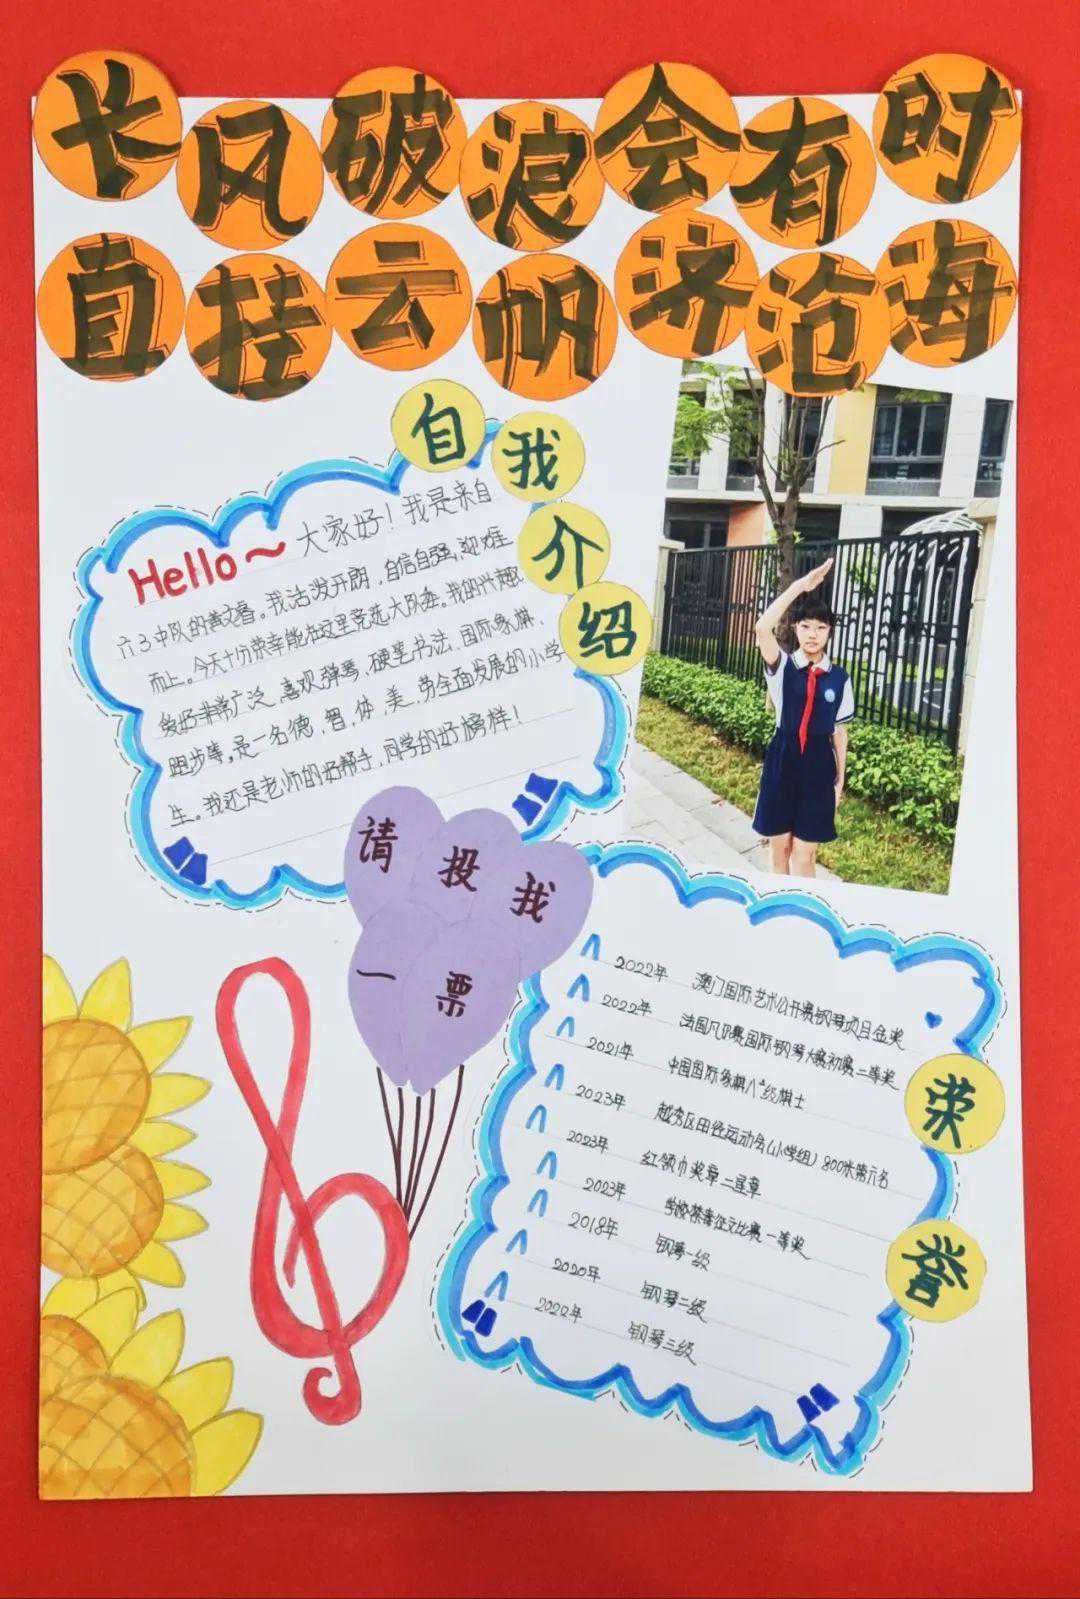 长风破浪会有时
直挂云帆济沧海
自我介绍
Hello~ 大家好！我是来自
六3中队的黄文睿。我活泼开朗，自信自强，迎难
而上。今天十分荣幸能在这里竞选大队委。我的兴趣
爱好非常广泛，喜欢弹琴、硬笔书法、国际象棋、
跑步等，是一名德、智、体、美、劳全面发展的小学
生。我还是老师的好帮手，同学的好榜样！
请投我
一票
荣誉
2022年 澳门国际艺术公开赛钢琴项目金奖
2022年 法国凡尔赛国际钢琴大赛初赛二等奖
2021年 中国国际象棋八级棋士
2023年 越秀区田径运动会(小学组)800米第六名
2023年 红领巾奖章二星章
2023年 学校禁毒征文比赛一等奖
2018年 钢琴一级
2020年 钢琴二级
2022年 钢琴三级